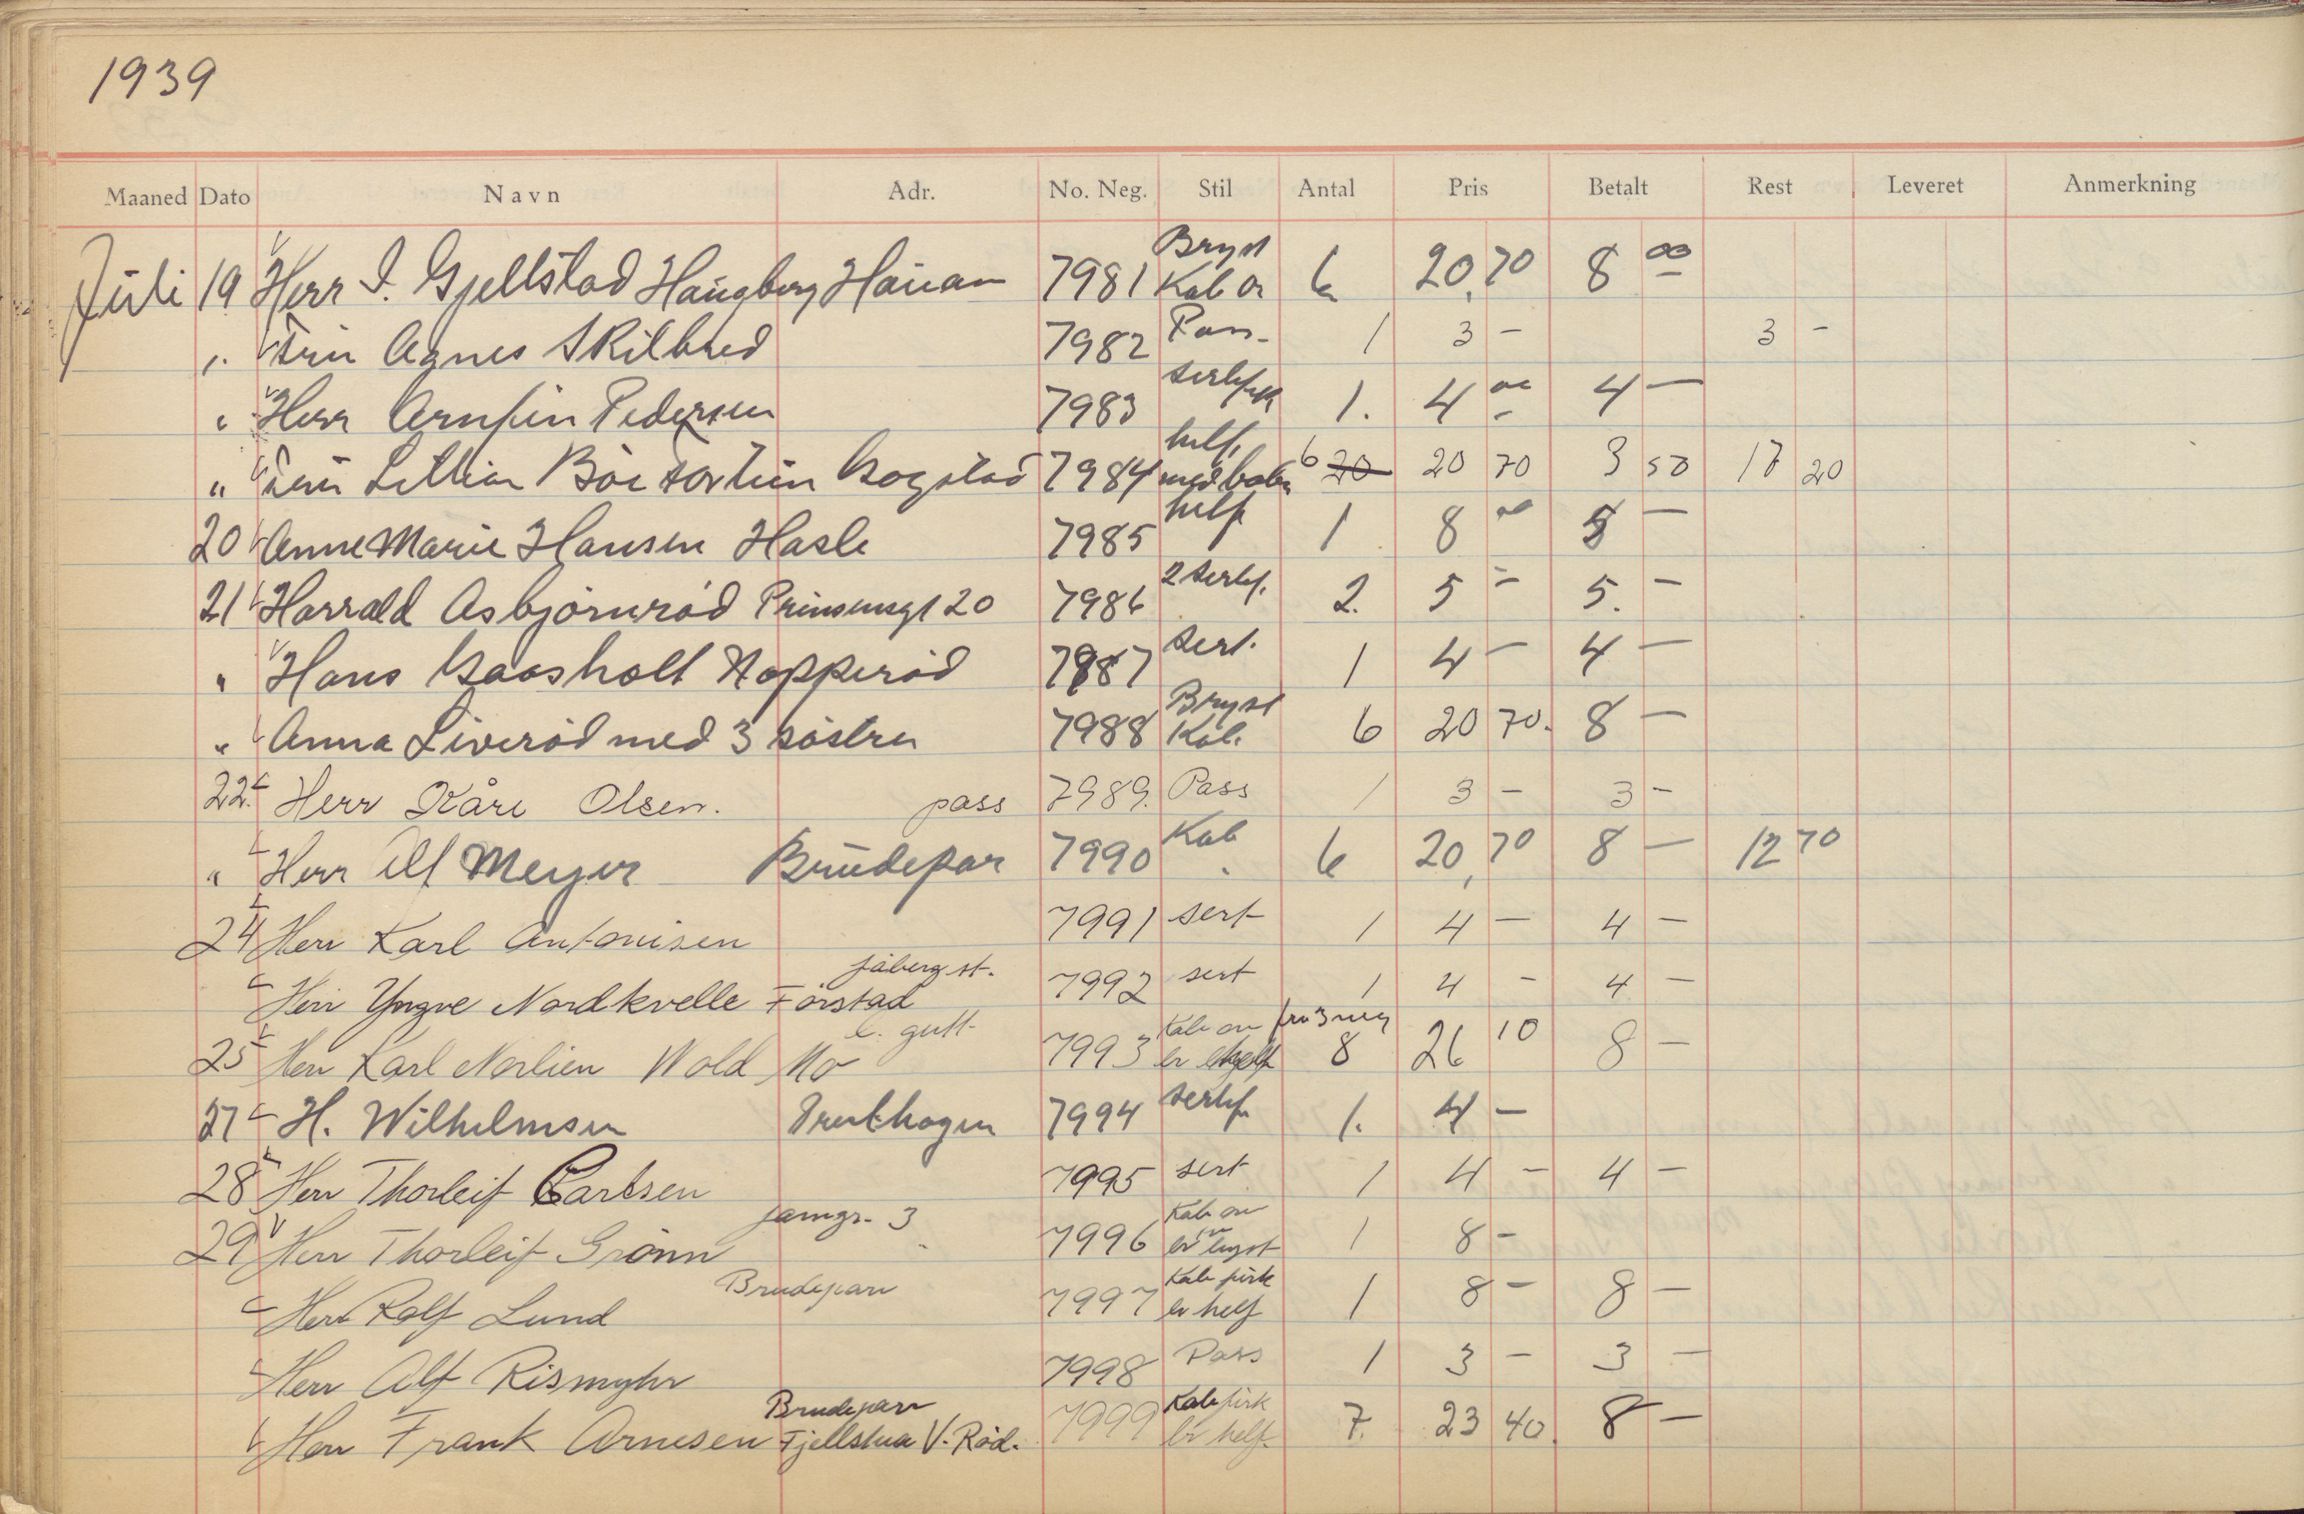 1939
Maaned Dato Navn Adr. No. Neg. Stil Antal Pris Betalt Rest Leveret Anmerkning
Juli 19 Herr I. Gjellstad Haugberg Hauan 7981 Bryst Kab 6 20,70 8 00
" Agnes Skilbred 7982 Pass 1 3 - 3 -
" Herr Arnfin Pedersen 7983 1. 4 00 4 -
" Lillian Böe Bogstad 7984 helf. med 6 20 20 70 3 50 17 20
20 Anne Marie Hansen Hasle 7985 helf 1 8 00 8 -
21 Harrald Asbjörnröd Prinsensgt 20 7986 2 sertf. 2. 5 - 5. -
" Hans Gaasholt Hopperöd 7987 sert. 1 4 - 4 -
" Anna Liveröd med 3 söstre 7988 Bryst Kab. 6 20 70. 8 -
22. Herr Kåre Olsen. pass 7989. Pass 1 3 - 3 -
" Herr Alf Meyer Brudepar 7990 Kab 6 20,70 8 - 12 70
24 Herr Karl Antonisen 7991 sert 1 4 - 4 -
Jåberg st.
Herr Yngve Nordkvelle Förstad 7992 sert 1 4 - 4 -
l. gutt
25 Herr Karl Norlien Wold Mo 7993 Kab 8 26 10 8 -
27 H. Wilhelmsen Preståhagen 7994 sertf. 1. 4 -
28 Herr Thorleif Carlsen 7995 sert 1 4 - 4 -
jerngr. 3
29 Herr Thorleif Grönn 7996 Kab br bryst 1 8 -
Brudepar
Herr Rolf Lund 7997 Kab br helf 1 8 - 8 -
Herr Alf Rismyhr 7998 Pass 1 3 - 3 -
Brudepar
Herr Frank Arnesen Fjellstua V. Röd. 7999 Kab br helf. 7. 23 40. 8 -